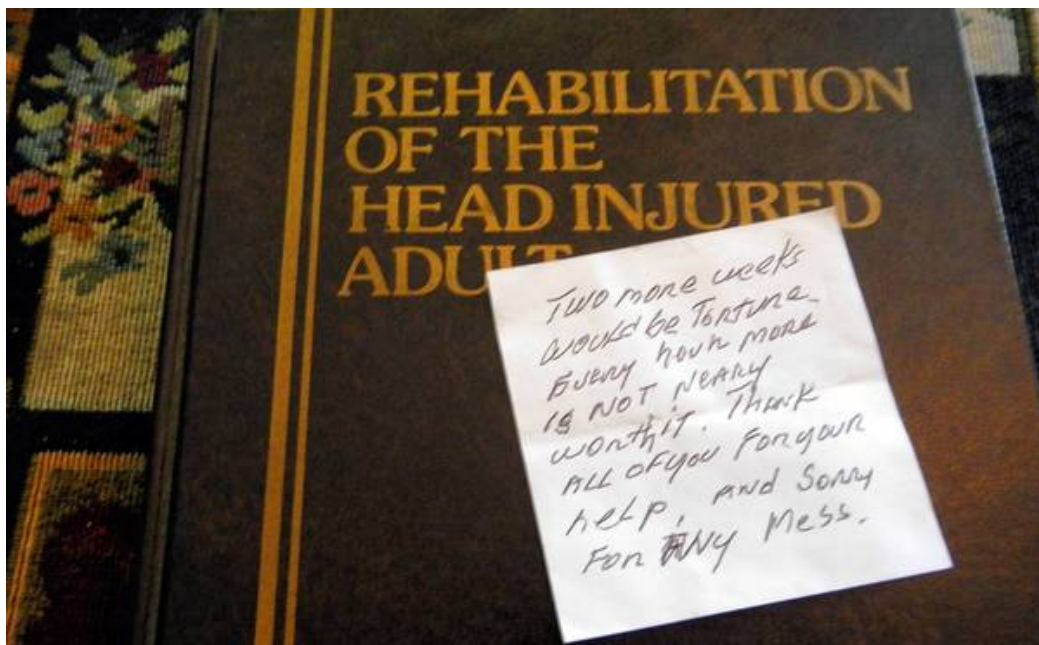 REHABILITATION
OF THE
HEAD INJURED
ADULT
Two more weeks
would be Torture.
Every hour more
is NOT NeARy
worth it. Thank
ALL OF you For your
help, And Sorry
For ANy Mess.